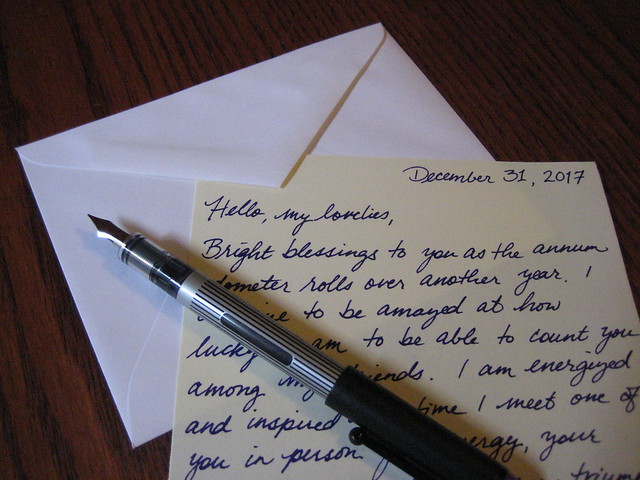 December 31, 2017
Hello, my lovelies,
Bright blessings to you as the annum
rolls over another year. I
to be amazed at how
lucky am to be able to count you
among my friends. I am energized
and inspired time I meet one of
you in person energy, your